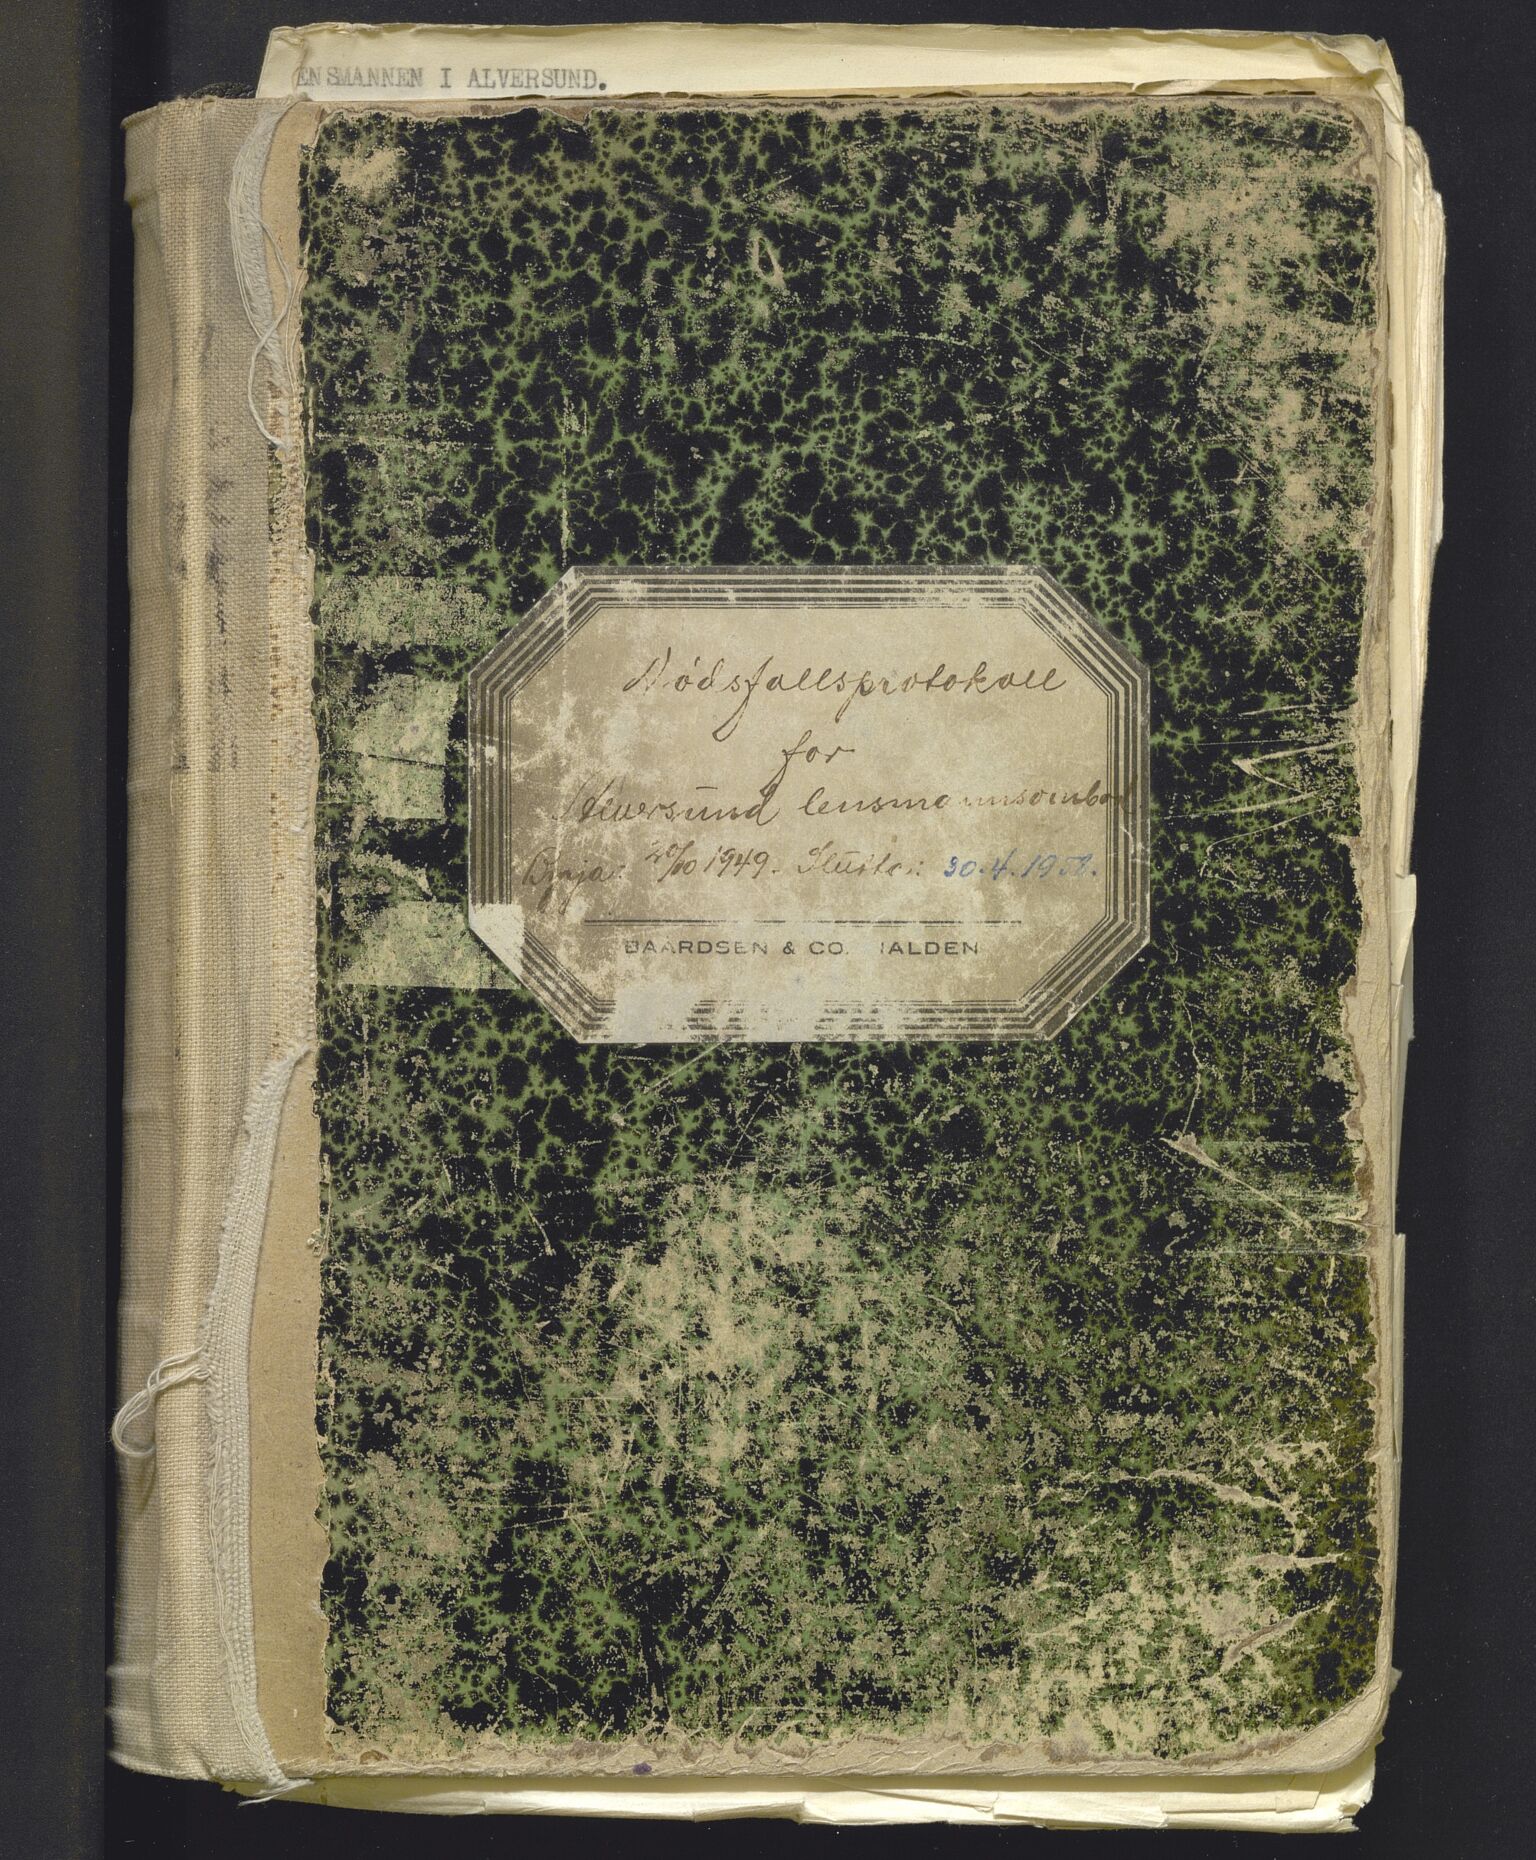 ENSMANNEN I ALVERSUND.
Dødsfallsprotokoll
for
Alversund lensmannsombod.
Bynja: 20/10 1949. Slutta: 30.4.1958.
BAARDSEN & CO. HALDEN